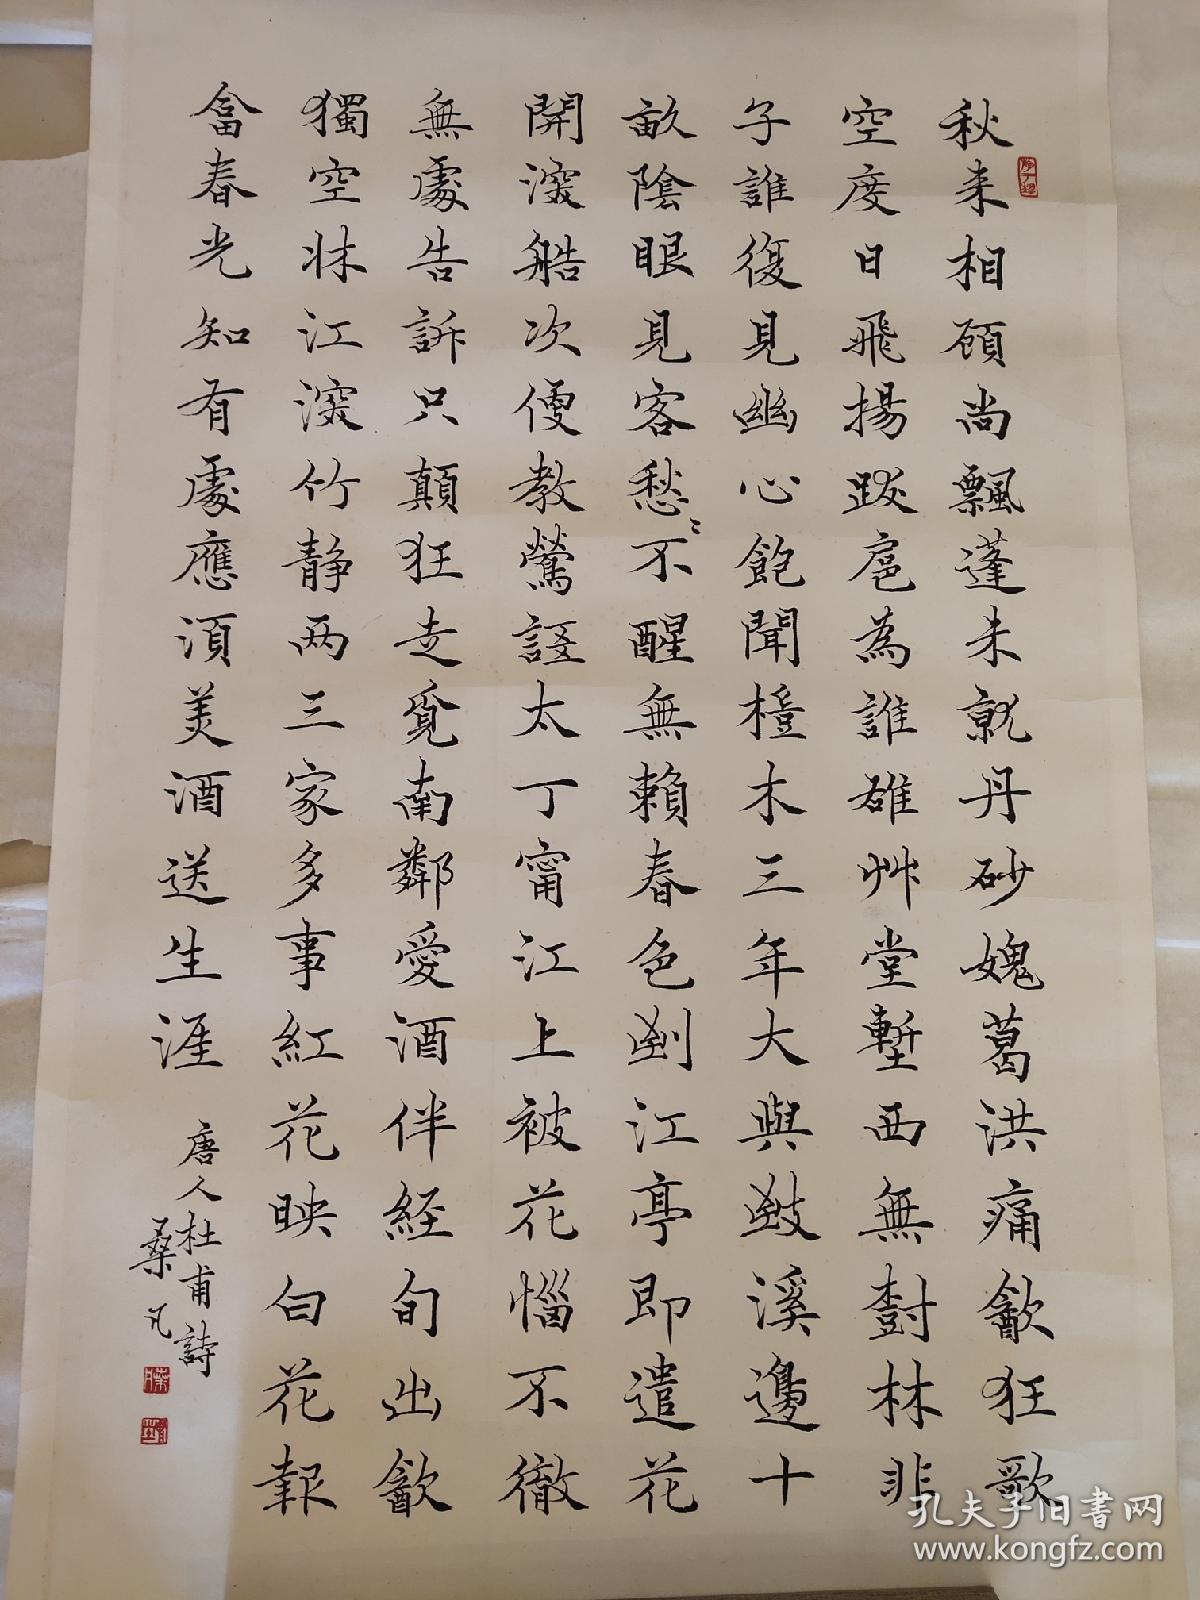 秋来相顧尚飄蓬未就丹砂媿葛洪痛㱃狂歌
空度日飛揚跋扈為誰雄艸堂塹西無樹林非
子誰復見幽心飽聞榿木三年大與致溪邊十
畝陰眼見客愁〻不醒無賴春色到江亭即遣花
開深艁次便教鶯語太丁甯江上被花惱不徹
無處告訴只顛狂走覓南鄰愛酒伴経旬出㱃
獨空牀江深竹静两三家多事紅花映白花報
畣春光知有處應須美酒送生涯
唐人杜甫詩
桑凡
孔夫子旧书网
www.kongfz.com